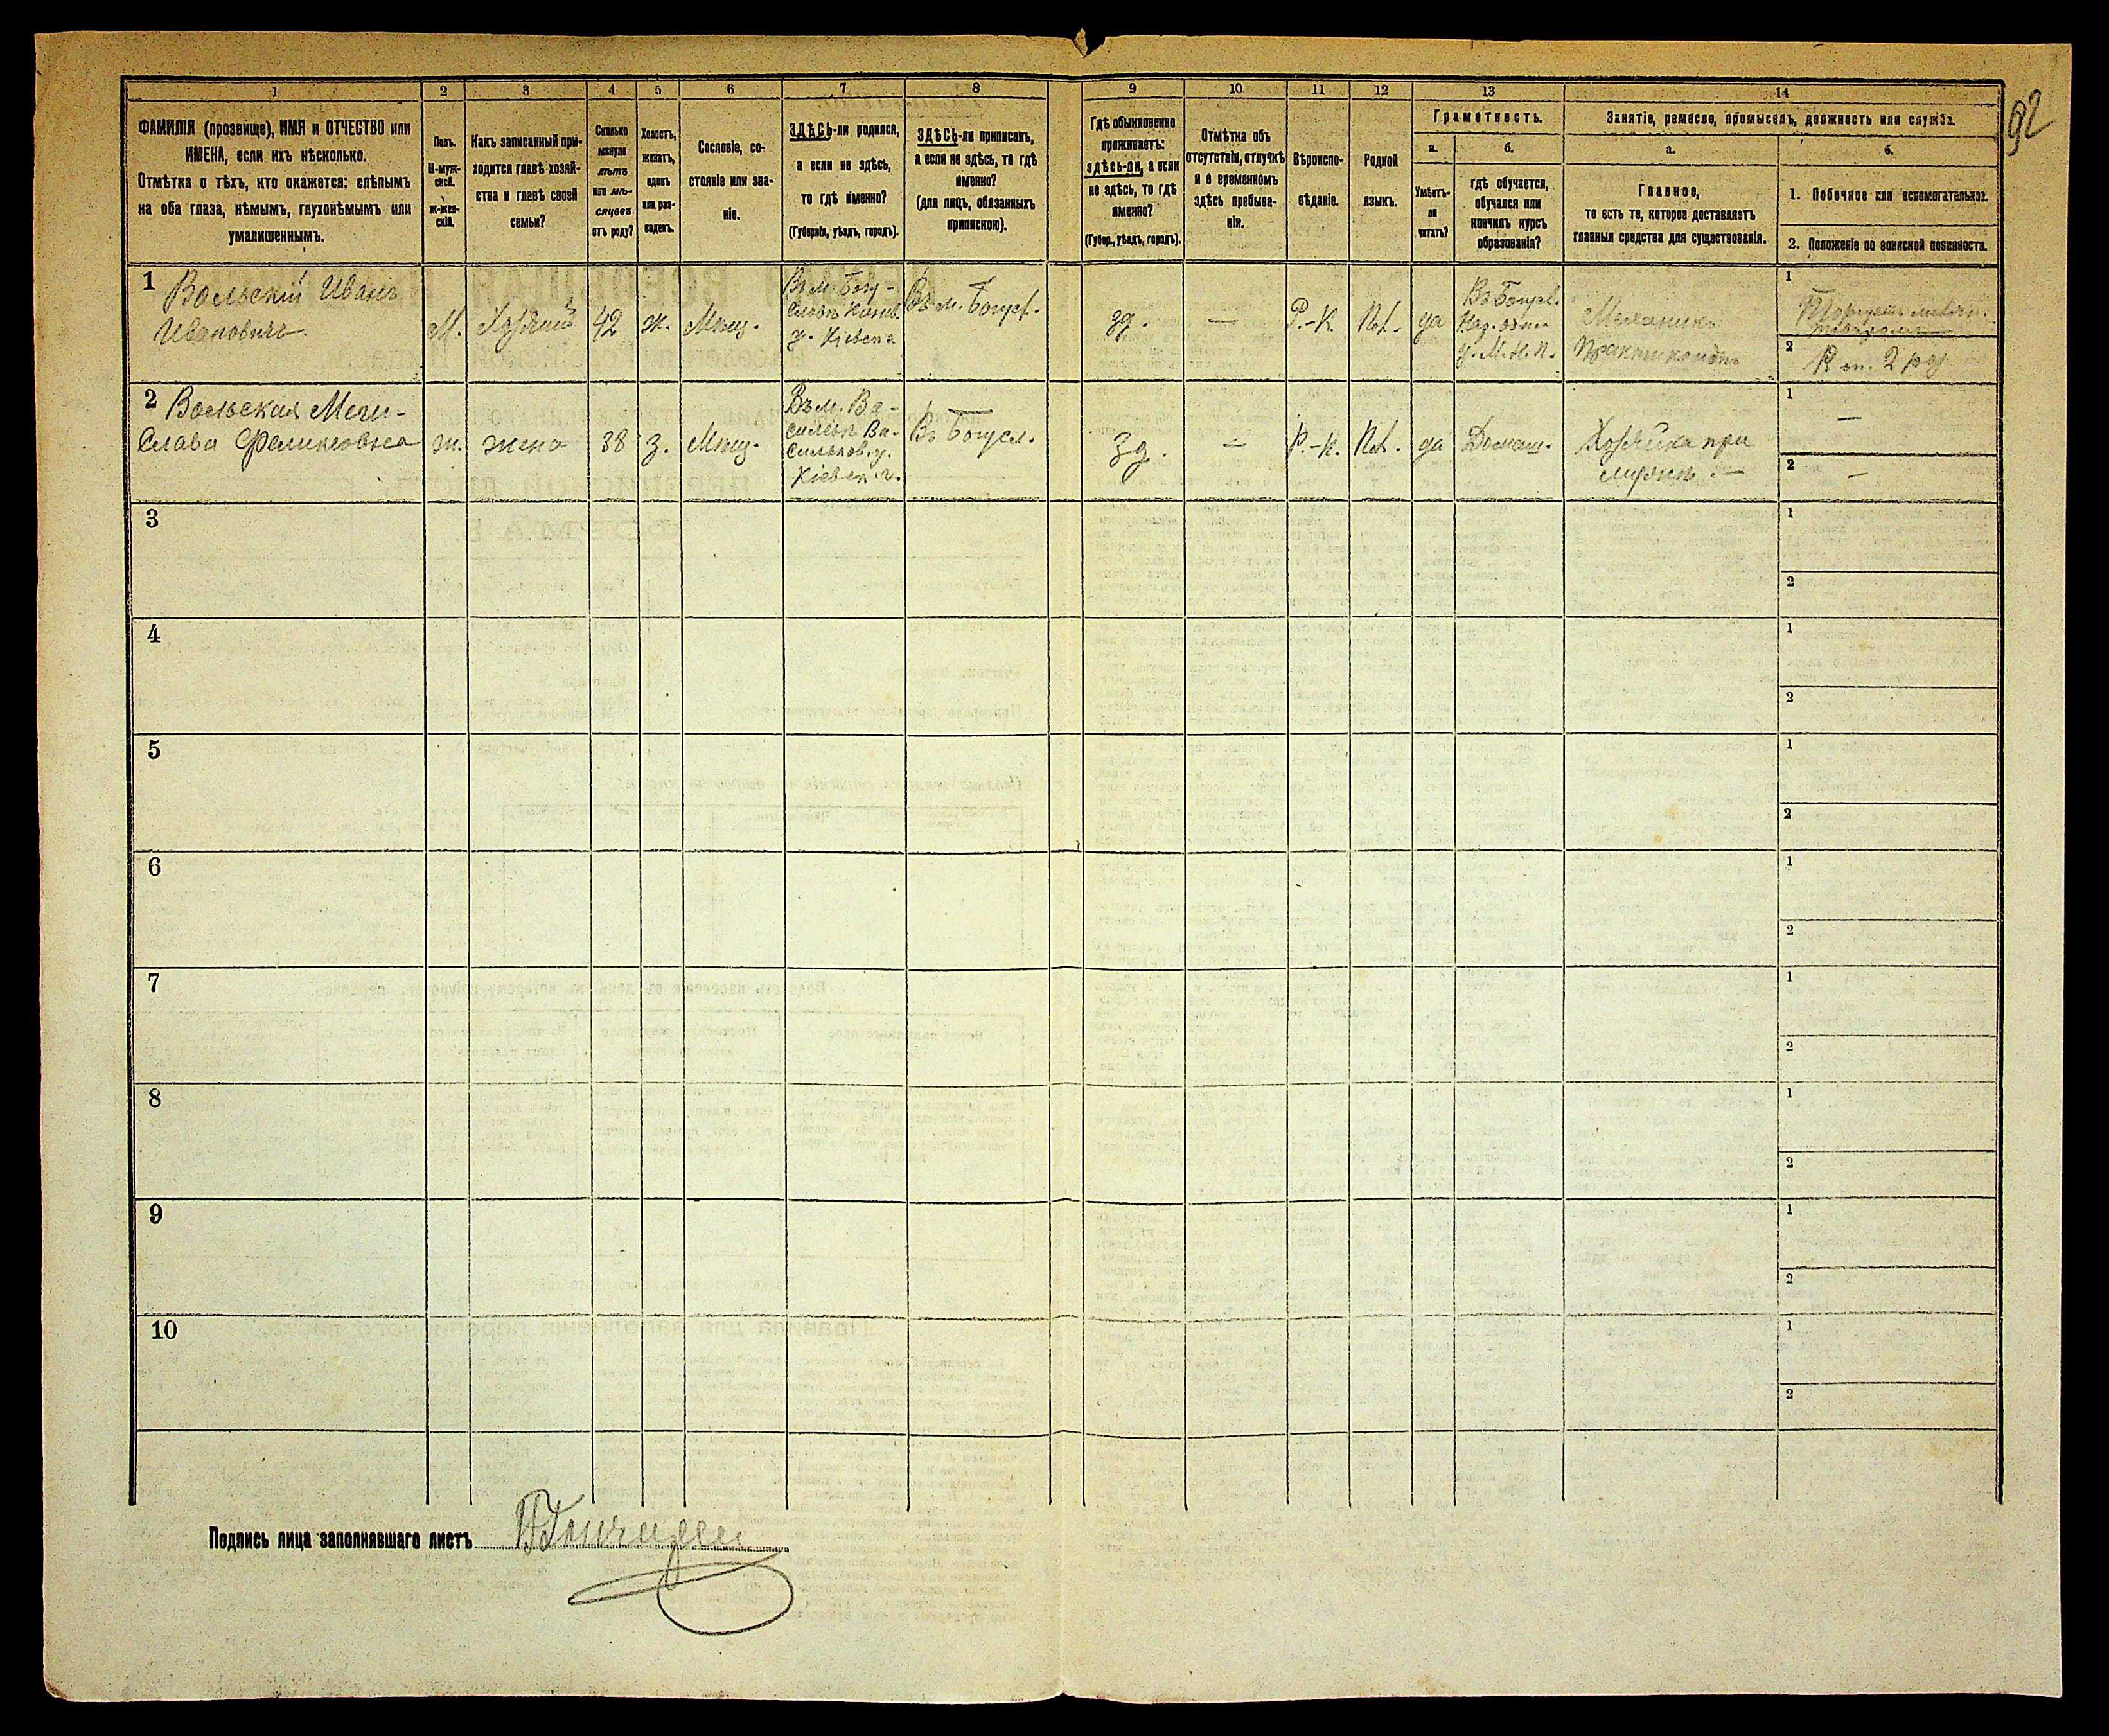 92
1 2 3 4 5 6 7 8 9 10 11 12 13 14
ФАМИЛІЯ (прозвище), ИМЯ и ОТЧЕСТВО или
ИМЕНА, если ихъ нѣсколько.
Отмѣтка о тѣхъ, кто окажется: слѣпымъ
на оба глаза, нѣмымъ, глухонѣмымъ или
умалишеннымъ.
Полъ.
М-муж-
ской.
Ж-жен-
скій.
Какъ записанный при-
ходится главѣ хозяй-
ства и главѣ своей
семьи?
Сколько
минуло
лѣтъ
или мѣ-
сяцевъ
отъ роду?
Холостъ,
женатъ,
вдовъ
или раз-
веденъ.
Сословіе, со-
стояніе или зва-
ніе.
ЗДѢСЬ-ли родился,
а если не здѣсь,
то гдѣ именно?
(Губернія, уѣздъ, городъ).
ЗДѢСЬ-ли приписанъ,
а если не здѣсь, то гдѣ
именно?
(для лицъ, обязанныхъ
припискою).
Гдѣ обыкновенно
проживаетъ:
здѣсь-ли, а если
не здѣсь, то гдѣ
именно?
(Губер., уѣздъ, городъ).
Отмѣтка объ
отсутствіи, отлучкѣ
и о временномъ
здѣсь пребыва-
ніи.
Вѣроиспо-
вѣданіе.
Родной
языкъ.
Грамотность.
а.
Умѣетъ-
ли
читать?
б.
гдѣ обучается,
обучался или
кончилъ курсъ
образованія?
Занятіе, ремесло, промыселъ, должность или служба.
а.
Главное,
то есть то, которое доставляетъ
главныя средства для существованія.
б.
1. Побочное или вспомогательное.
2. Положеніе по воинской повинности.
1
Вольскій Иванъ
Ивановичъ
М.
Хозяинъ
42
ж.
Мѣщ.
Въ м. Богу-
славѣ Канев.
у. Кіевск.
Въ м. Богусл.
зд.
—
Р.-К.
Пол.
да
Въ Богусл.
у. М. Н. П.
Механикъ
Практикантъ
1
2
2 Вольская Мечи-
слава Феликсовна
ж.
жена
38
з.
Мѣщ.
Въ м. Ва-
сильк. Ва-
сильков. у.
Кіевск. г.
Въ Богусл.
зд.
—
Р.-К.
Пол.
да
Домаш.
Хозяйка при
мужѣ. —
1
—
2
—
3
1
2
4
1
2
5
1
2
6
1
2
7
1
2
8
1
2
9
1
2
10
1
2
Подпись лица заполнявшаго листъ